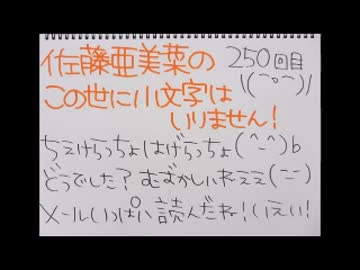 佐藤亜美菜の 250回目
この世に小文字は \(⌒o⌒)/
いりません!
ちぇけらっちょはげらっちょ(^-^)b
どうでした? むずかしいねぇぇ(ニ-ニ)
メールいっぱい読んだね!いぇい!